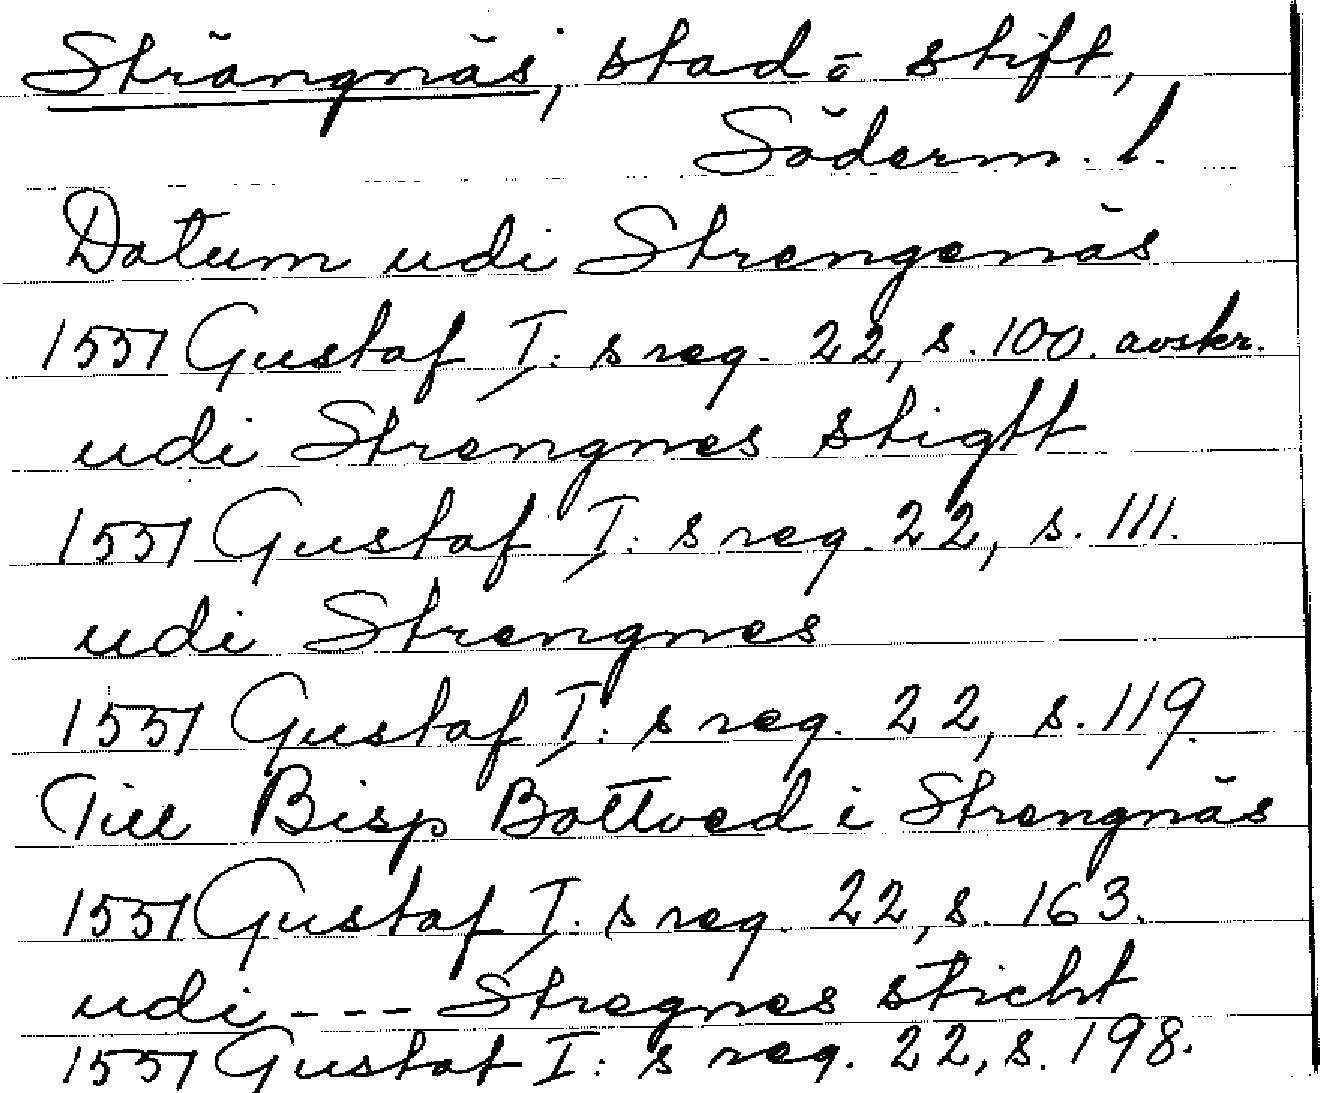 Strängnäs, stad o stift,
Söderm. l.
Datum udi Strengenäs
1551 Gustaf I: s reg. 22, s. 100. avskr.
udi Strengnes stigtt
1551 Gustaf I: s reg. 22, s. 111.
udi Strengnes
1551 Gustaf I: s reg. 22, s. 119.
Till Bisp Bottved i Strengnäs
1551 Gustaf I: s reg. 22, s. 163.
udi --- Stregnes sticht
1551 Gustaf I: s reg. 22, s. 198.